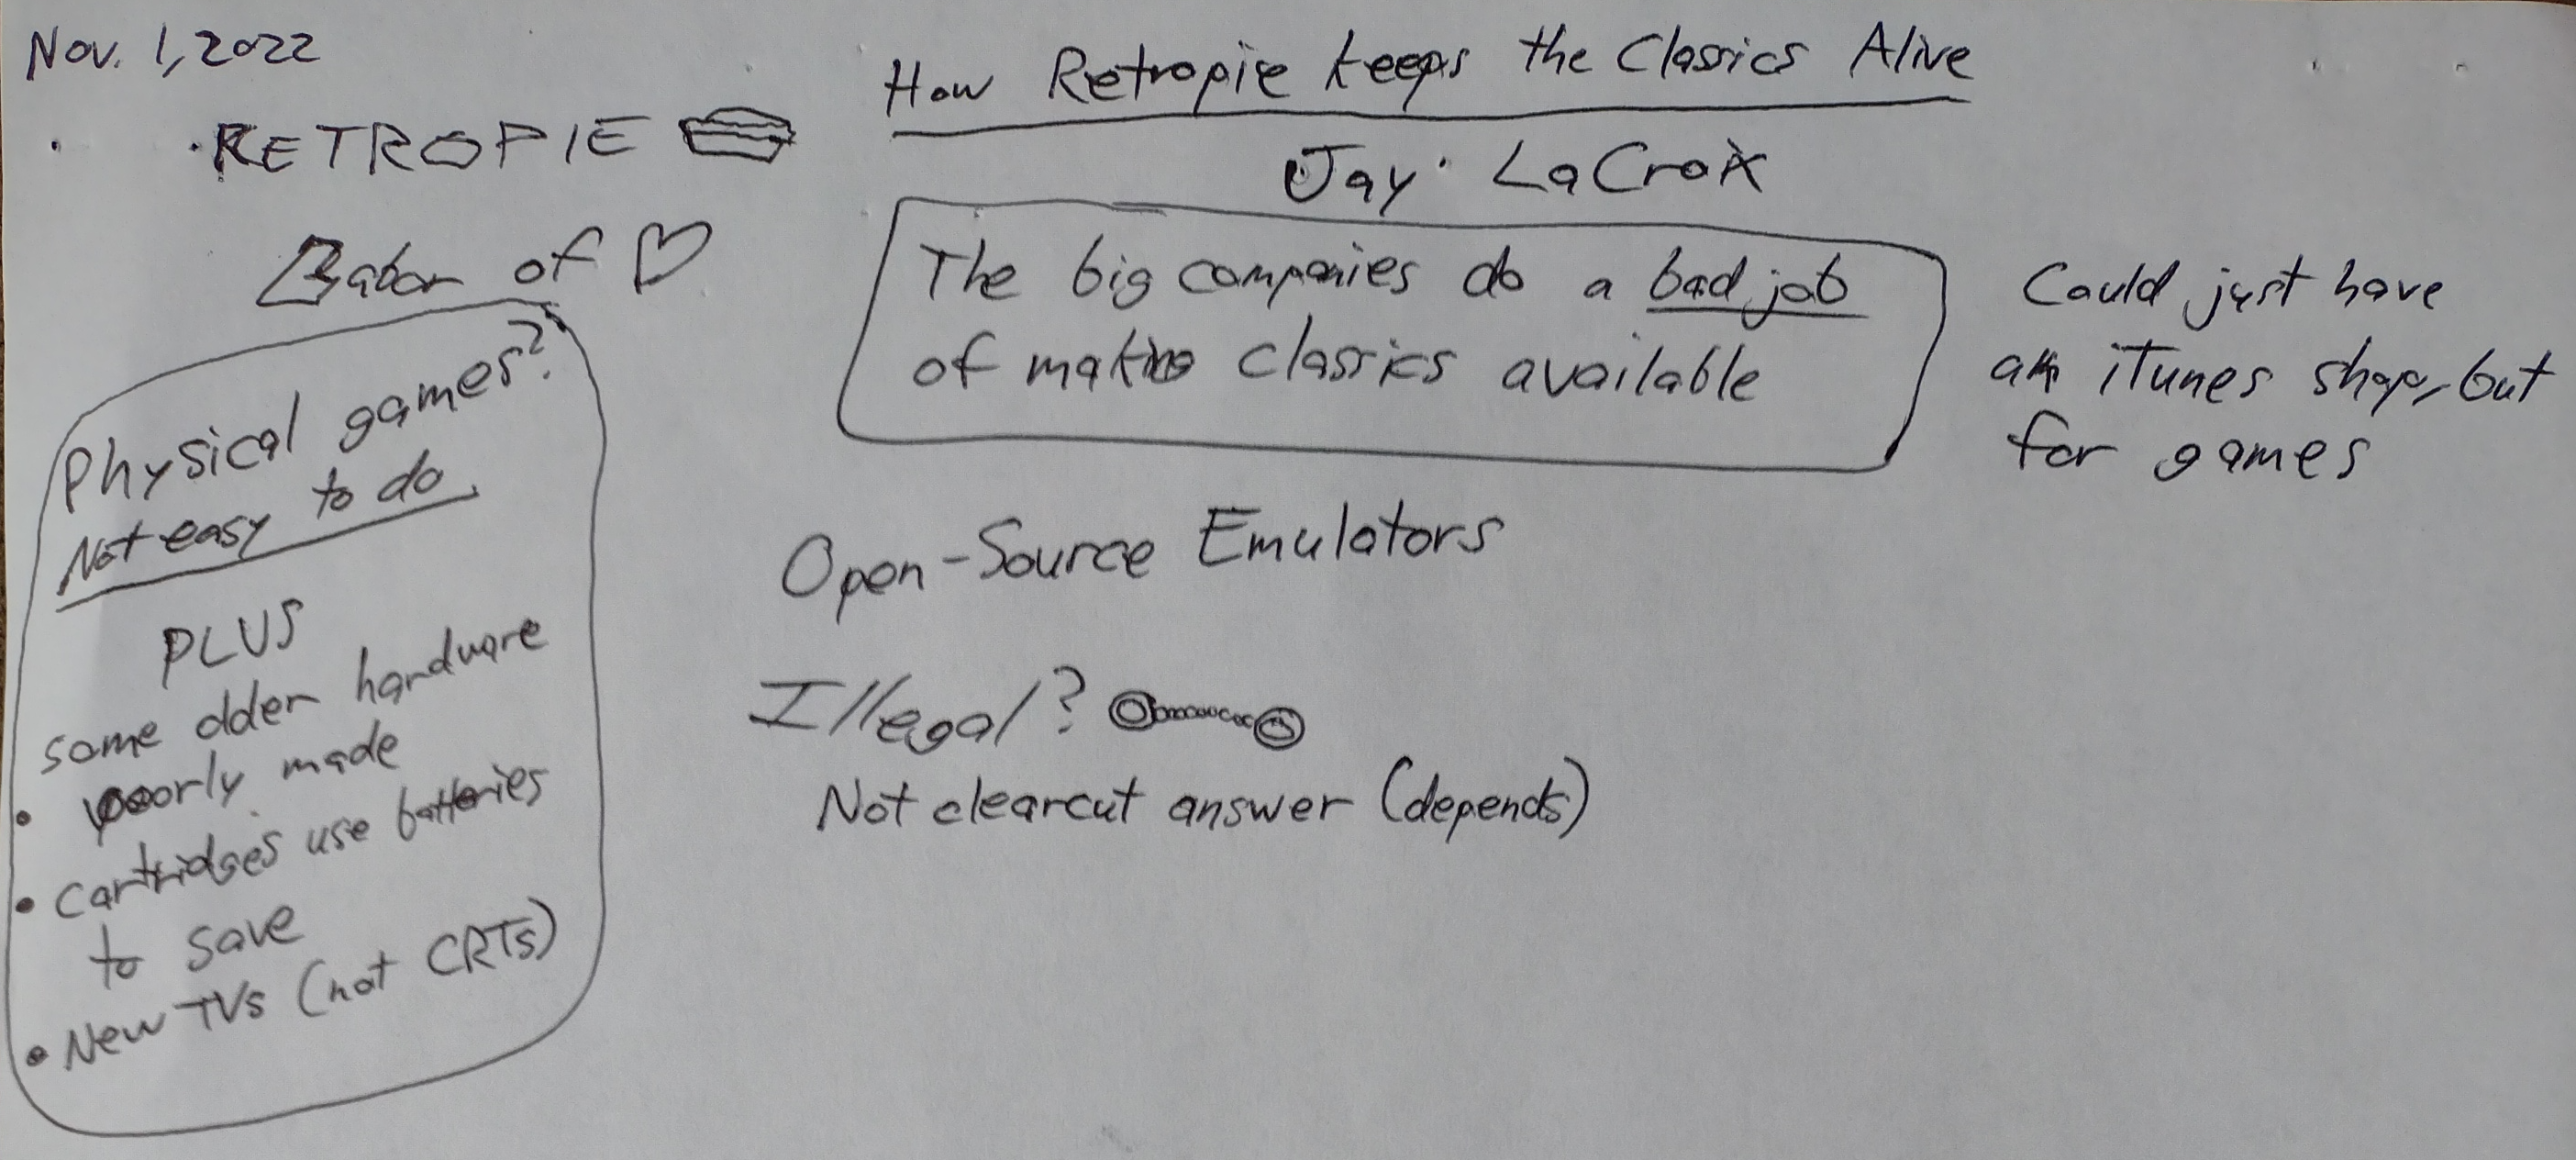 Nov. 1, 2022
How Retropie keeps the Classics Alive
Jay LaCroix
RETROPIE
Labor of
The big companies do a bad job
of making classics available
Could just have
an iTunes shop, but
for games
Physical games?
Not easy to do
PLUS
some older hardware
• poorly made
• cartridges use batteries
to save
• New TVs (not CRTs)
Open-Source Emulators
Illegal?
Not clearcut answer (depends)